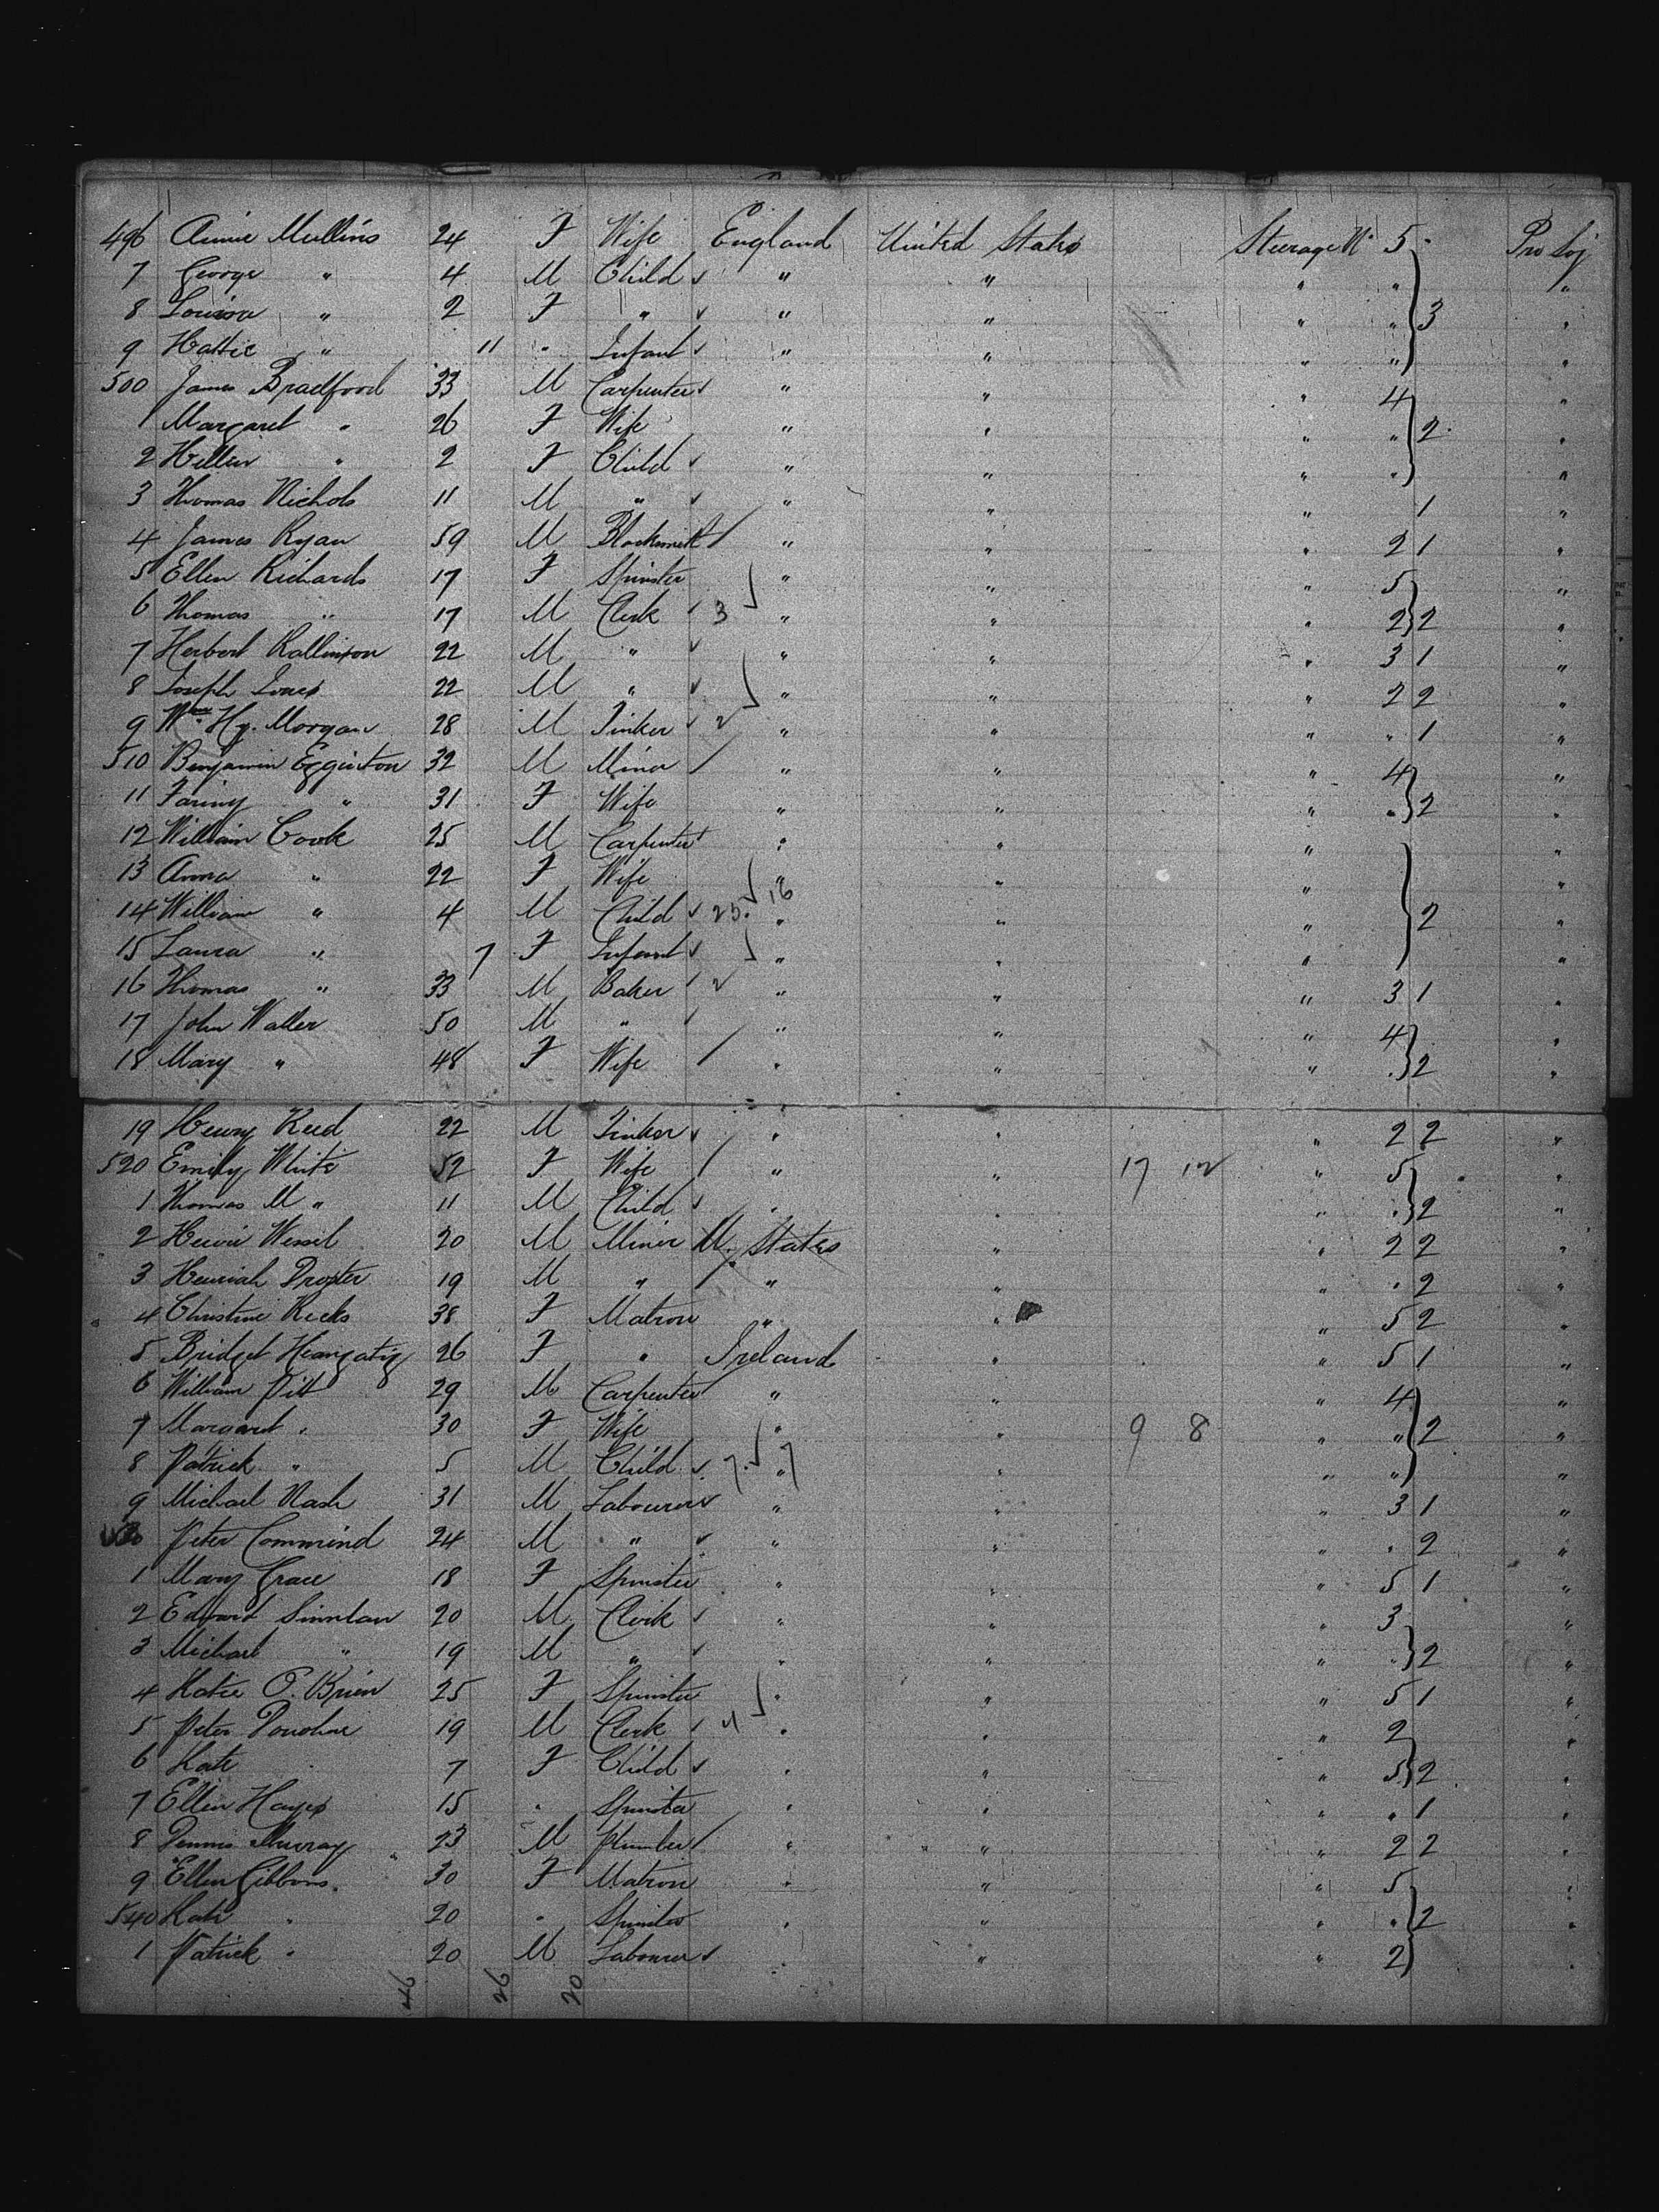 496 Annie Mullins 24 F Wife England United States Steerage No 5 Pro Soj
7 George " 4 M Child " " " " "
8 Louisa " 2 F " " " " " 3 "
9 Hattie " 11 " Infant " " " " "
500 James Bradford 33 M Carpenter " " " 4 "
1 Margaret " 26 F Wife " " " " 2 "
2 Hellen " 2 F Child " " " " "
3 Thomas Nichols 11 M " " " " 1 "
4 James Ryan 59 M Blacksmith " " " 2 1 "
5 Ellen Richards 17 F Spinster " " " 5 "
6 Thomas " 17 M Clerk 3 " " " 2 2 "
7 Herbert Rallinson 22 M " " " " 3 1 "
8 Joseph Jones 22 M " " " " 2 2 "
9 Wm Hy. Morgan 28 M Tinker 2 " " " " 1 "
510 Benjamin Egginton 32 M Miner " " " 4 "
11 Fanny " 31 F Wife " " " " 2 "
12 William Cook 25 M Carpenter " " " "
13 Anna " 22 F Wife " " " "
14 William " 4 M Child 23. 16 " " " 2 "
15 Laura " 7 F Infant " " " "
16 Thomas " 33 M Baker " " " 3 1 "
17 John Waller 50 M " " " " 4 "
18 Mary " 48 F Wife " " " " 2 "
19 Henry Reed 22 M Tinker " " " 2 2 "
520 Emily White 52 F Wife " " 17 12 " 5 "
1 Thomas M " 11 M Child " " " " 2 "
2 Wessel 20 M Miner U. States " " 2 2 "
3 Heinrich Droster 19 M " " " " " 2 "
4 Christine Recks 38 F Matron " " " 5 2 "
5 Bridget 26 F " Ireland " " 5 1 "
6 William Pitt 29 M Carpenter " " " 4 "
7 Margaret " 30 F Wife " " 9 8 " " 2 "
8 Patrick " 5 M Child 7. 7 " " " " "
9 Michael Nash 31 M Labourer " " " 3 1 "
530 Peter Commind 24 M " " " " " 2 "
1 Mary Grace 18 F Spinster " " " 5 1 "
2 Edward Sinnlan 20 M Clerk " " " 3 "
3 Michael " 19 M " " " " " 2 "
4 Katie O. Brien 25 F Spinster " " " 5 1 "
5 Peter Donohue 19 M Clerk 4 " " " 2 "
6 Kate " 7 F Child " " " 5 2 "
7 Ellen Hayes 15 " Spinster " " " " 1 "
8 Dennis Murray 23 M Plumber " " " 2 2 "
9 Ellen Gibbons 30 F Matron " " " 5 "
540 Kate " 20 " Spinster " " " " 2 "
1 Patrick " 20 M Labourer " " " 2 "
46 26 20